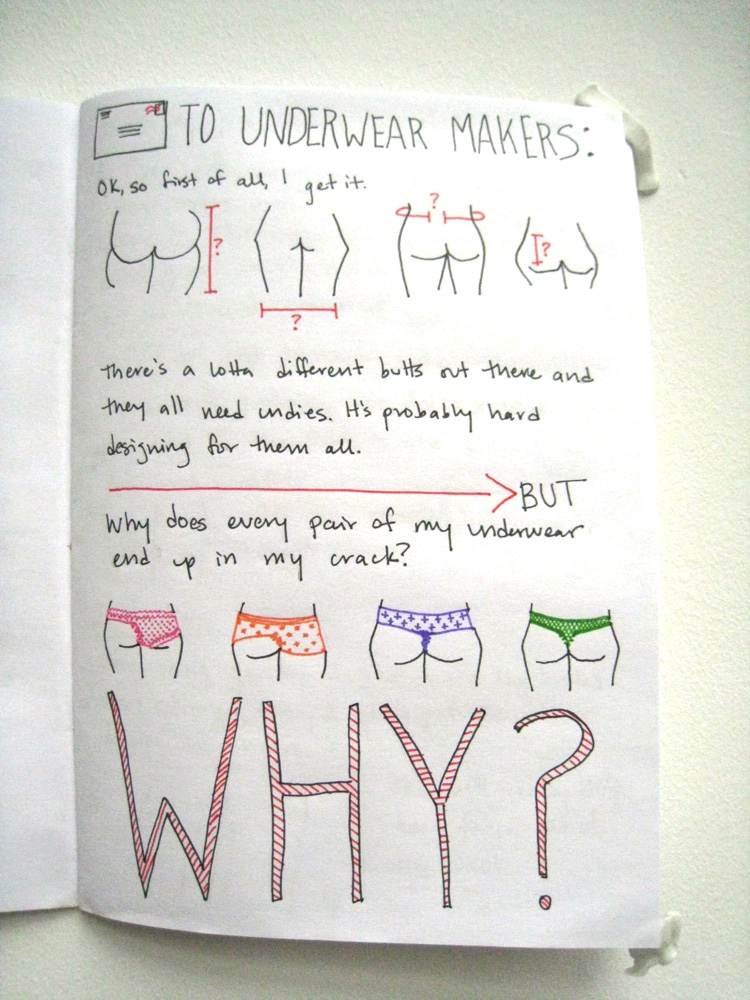 TO UNDERWEAR MAKERS:
OK, so first of all, I get it.
?
?
?
?
there's a lotta different butts out there and
they all need undies. It's probably hard
designing for them all.
BUT
Why does every pair of my underwear
end up in my crack?
WHY?